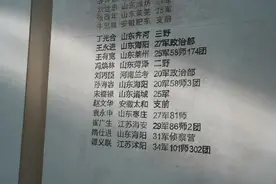 丁光合 山东齐河 三野
王永进 山东海阳 27军政治部
王有宽 山东莱州 25军58师174团
冯焕林 山东菏泽 二野
刘丙臣 河南兰考 20军政治部
孙寿容 山东海阳 20军58师3团
宋德禄 山东滨城 25军
赵文华 安徽太和 支前
袁永中 山东枣庄 27军81师
崔广生 江苏海安 29军86师2团
隋仕进 山东海阳 31军侦察营
谭义联 江苏沭阳 34军101师302团